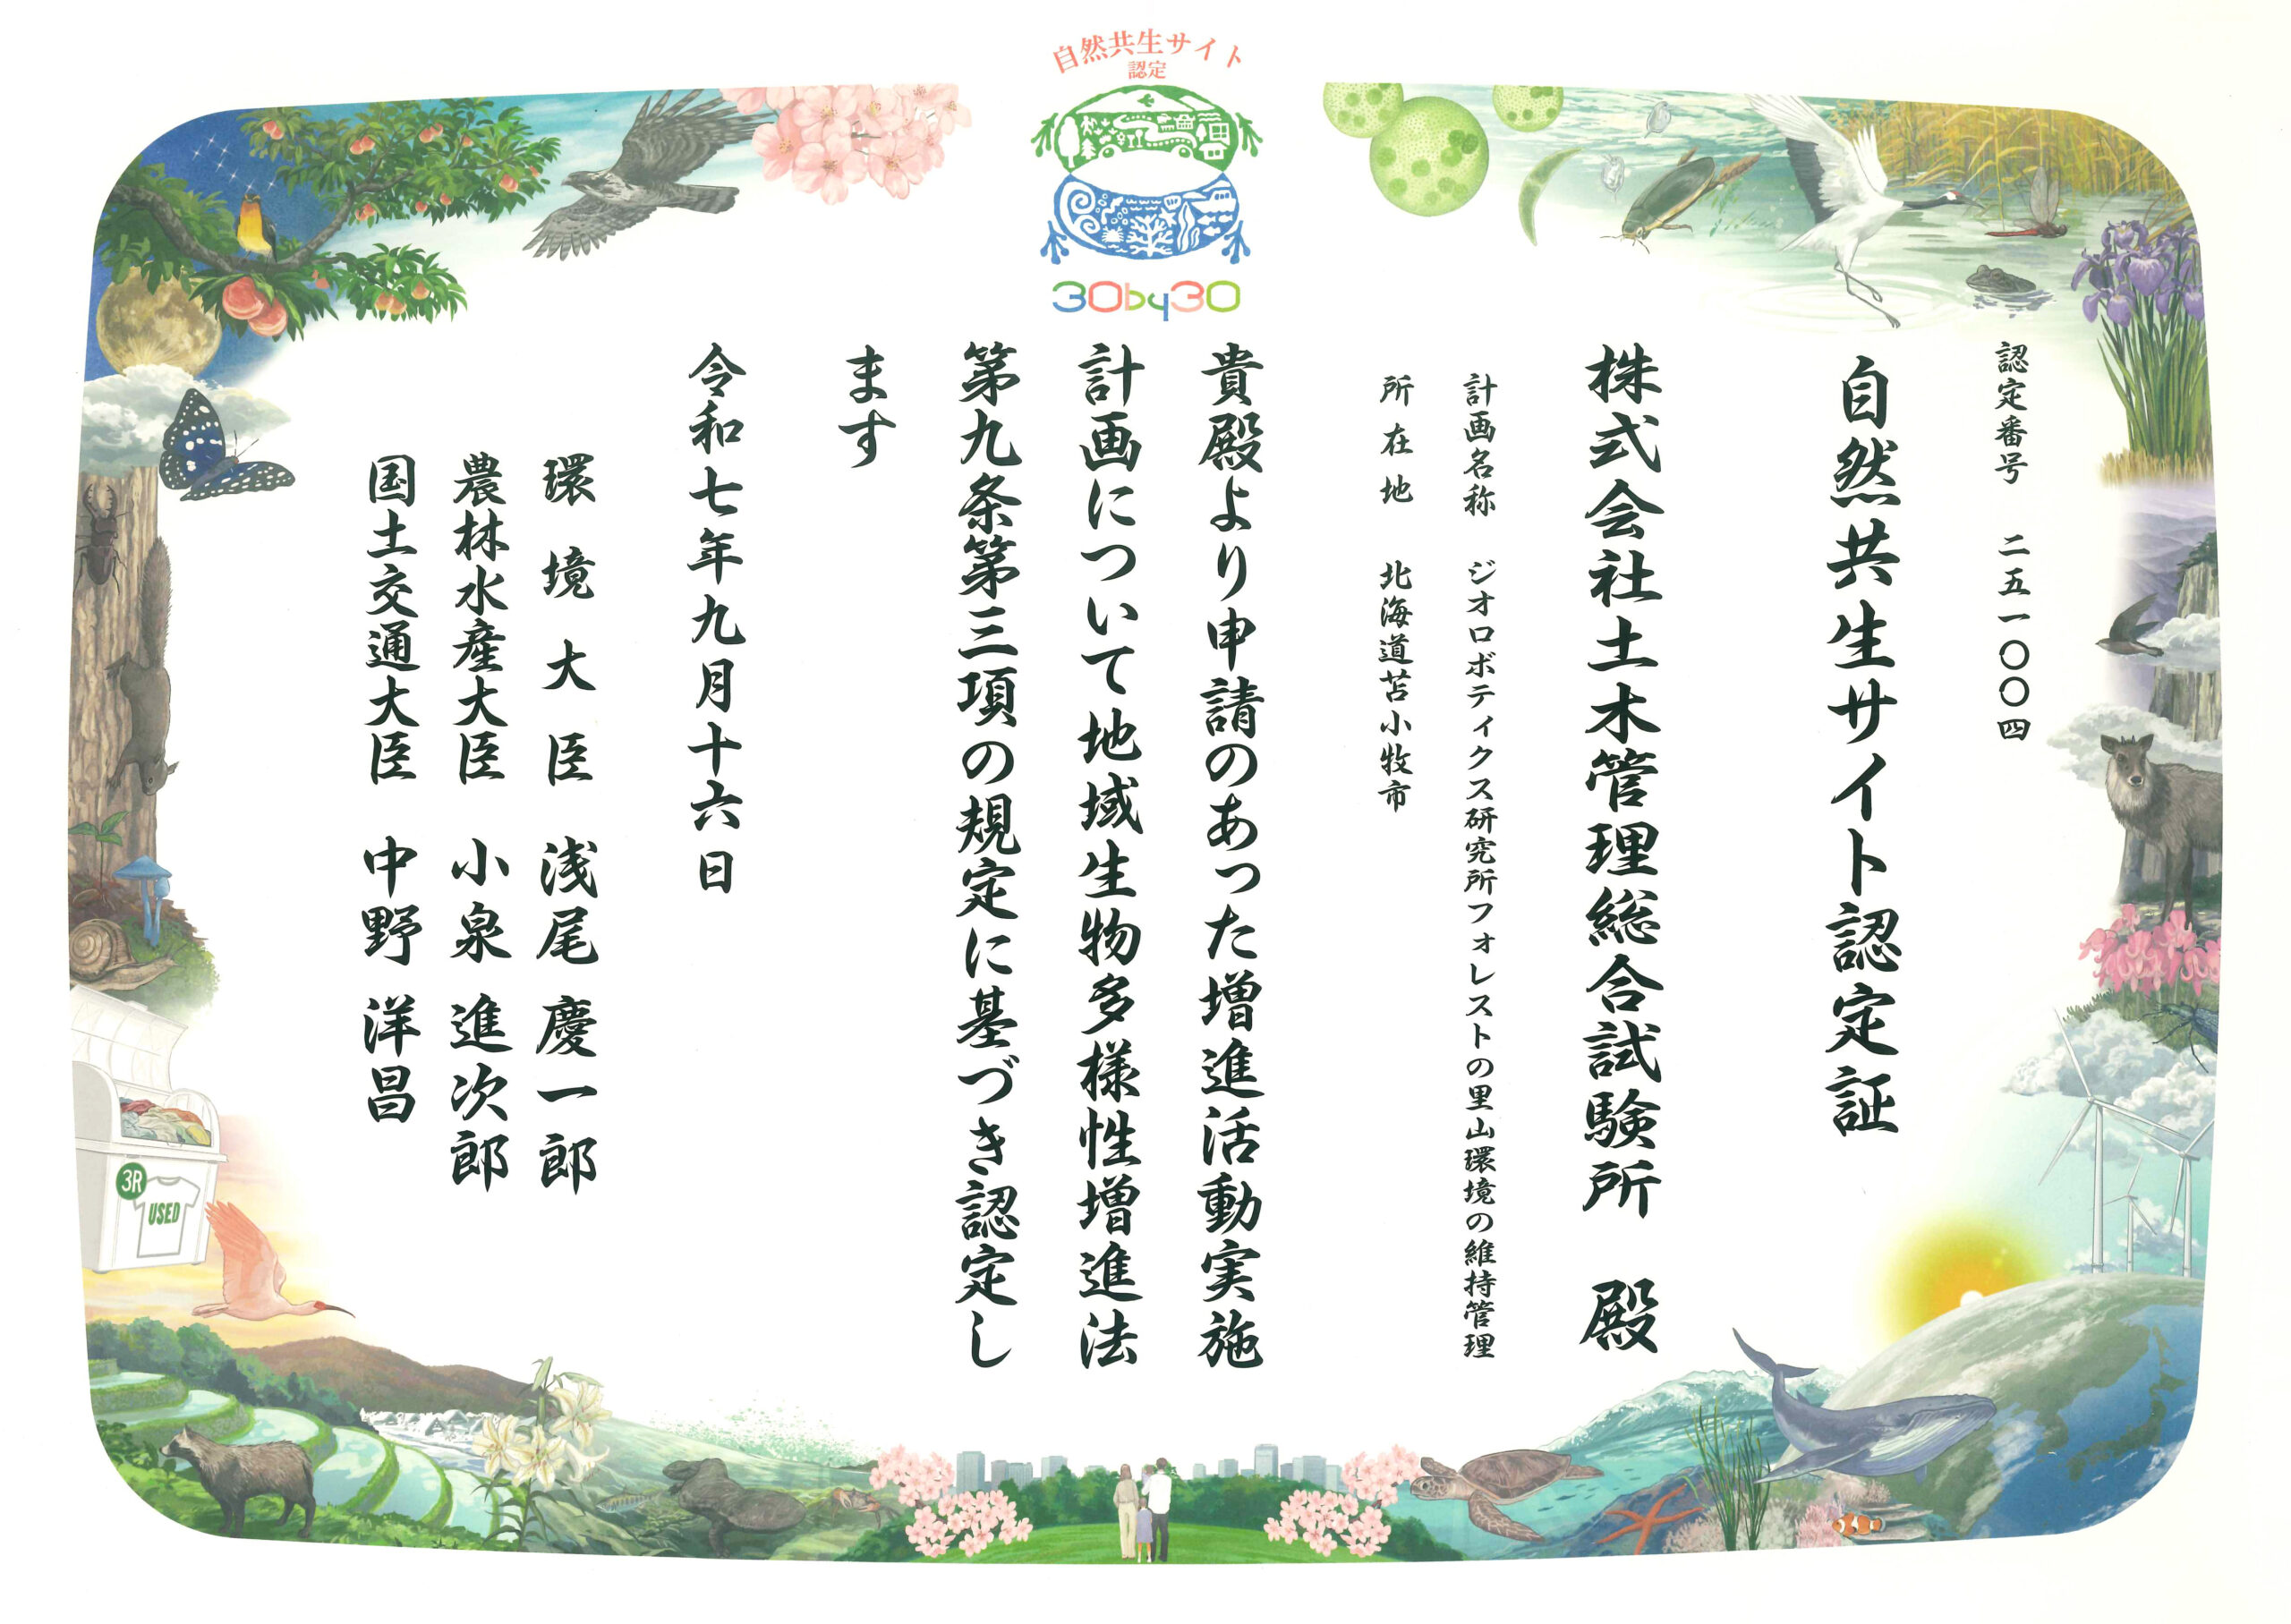 自然共生サイト
認定
30by30
認定番号 二五一〇〇四
自然共生サイト認定証
株式会社土木管理総合試験所 殿
計画名称 ジオロボティクス研究所フォレストの里山環境の維持管理
所在地 北海道苫小牧市
貴殿より申請のあった増進活動実施
計画について地域生物多様性増進法
第九条第三項の規定に基づき認定し
ます
令和七年九月十六日
環境大臣 浅尾 慶一郎
農林水産大臣 小泉 進次郎
国土交通大臣 中野 洋昌
3R
USED